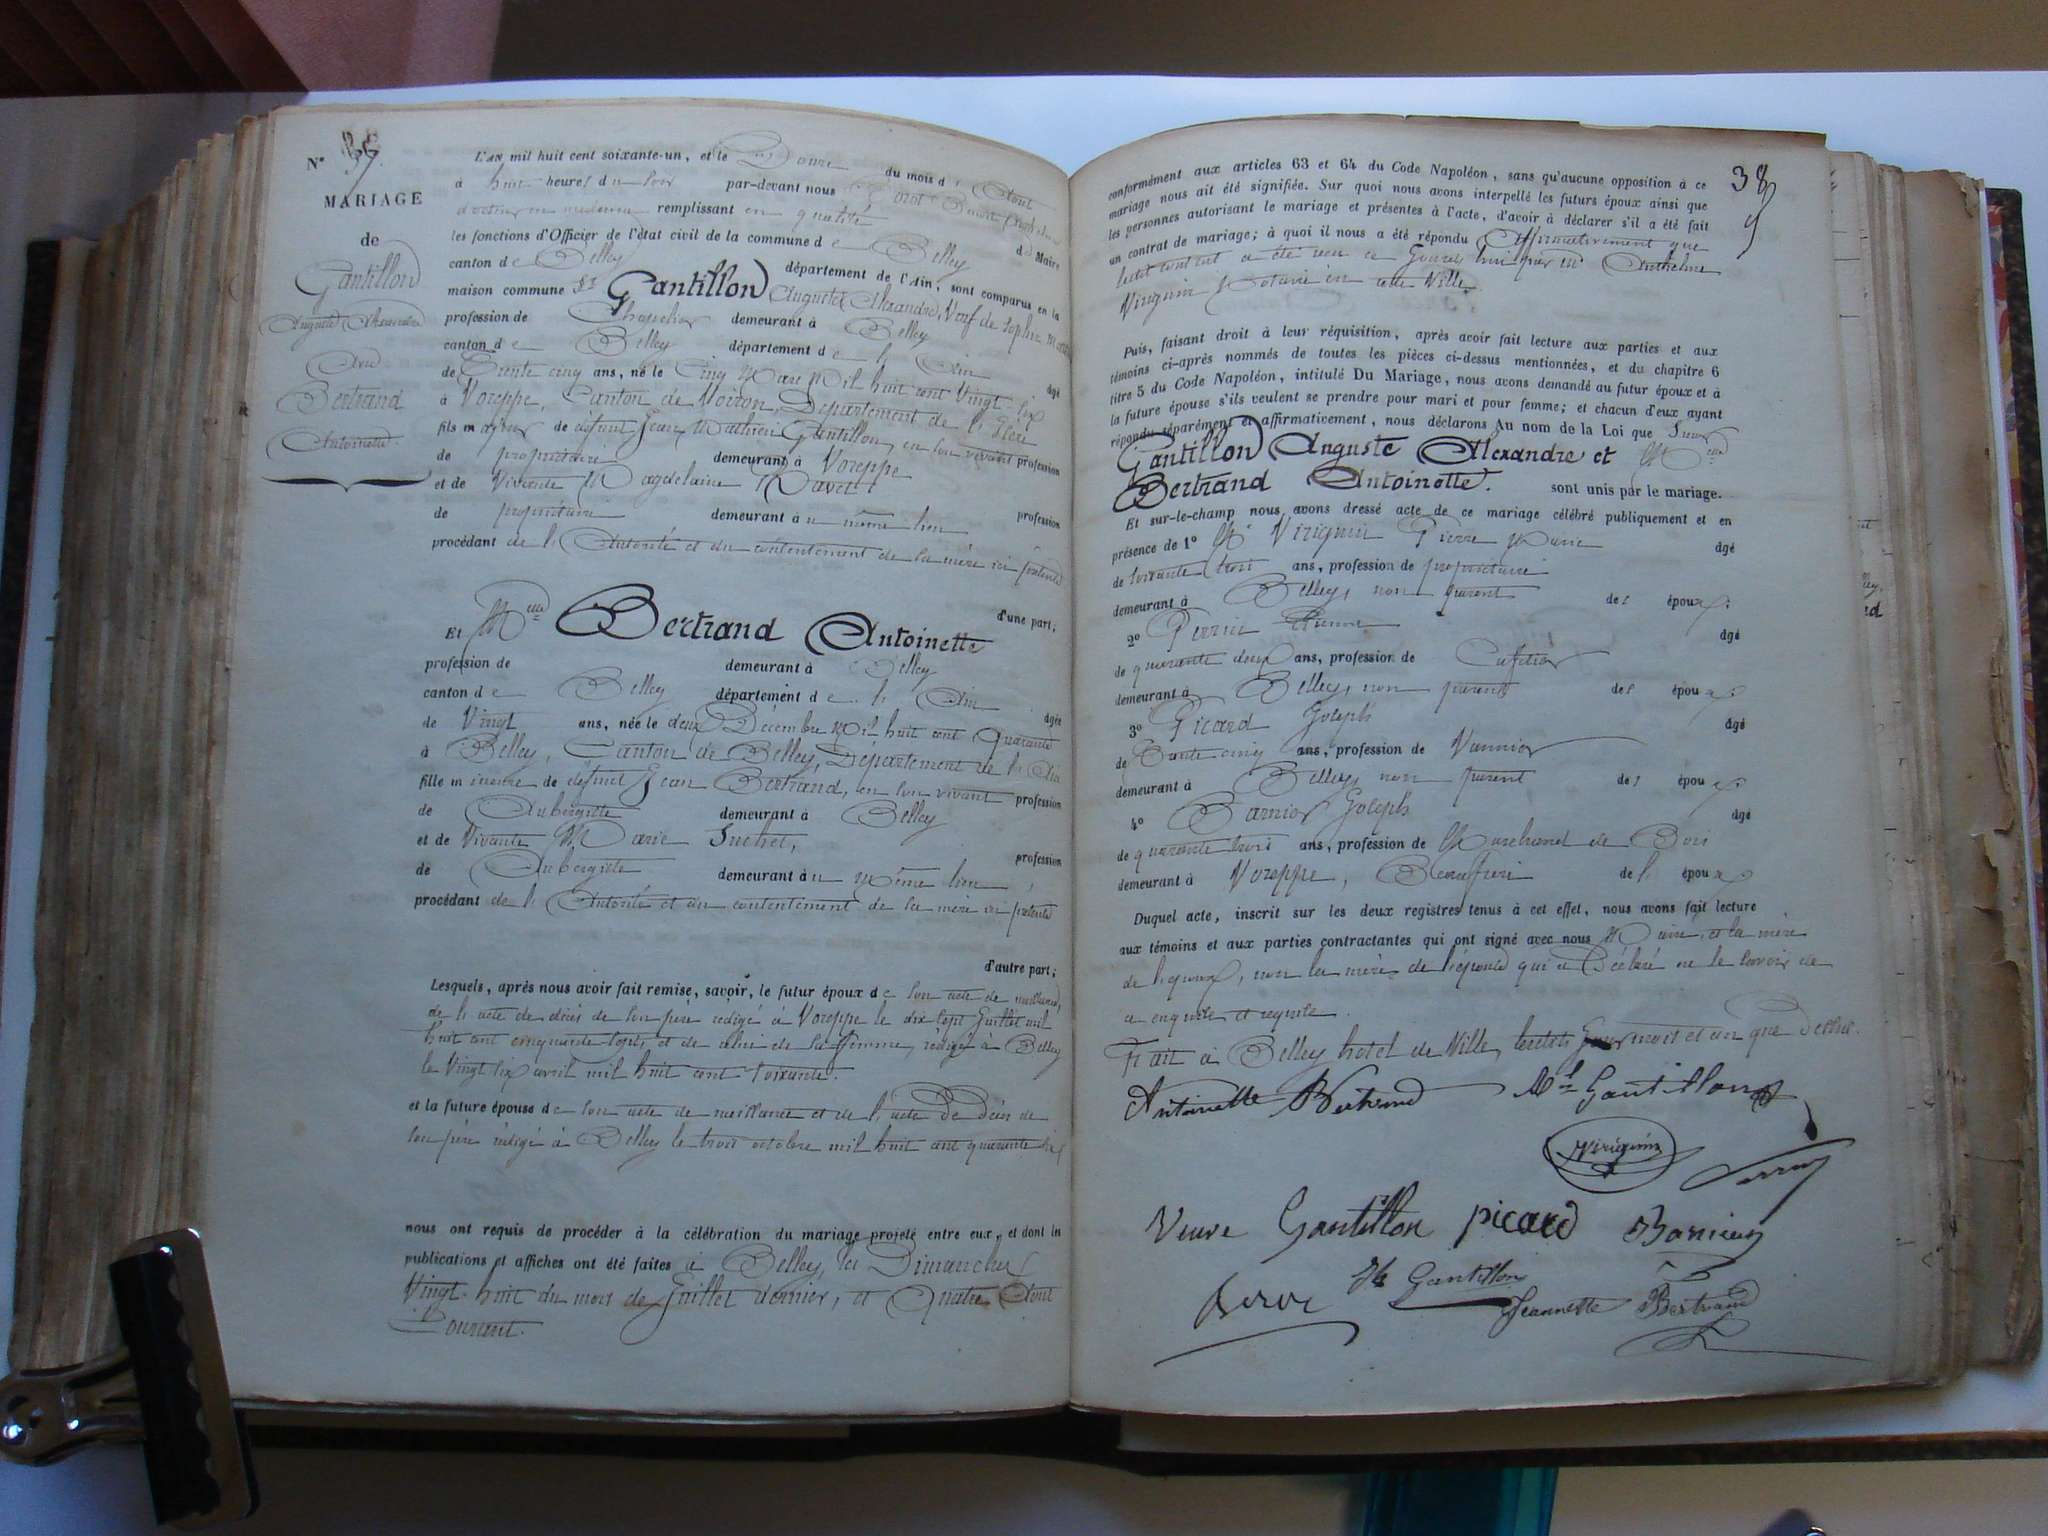 N°
MARIAGE
de
Gantillon
Auguste Alexandre
Et
Bertrand
Antoinette.
L'AN mil huit cent soixante-un, et le Douze du mois d' Aout
à huit heures du soir par-devant nous
docteur en médecine remplissant en qualité d Maire
les fonctions d'Officier de l'état civil de la commune de Belley
canton de Belley département de l'Ain, sont comparus en la
maison commune Sr Gantillon Auguste Alexandre, Veuf de Sophie
profession de Chapelier demeurant à Belley
canton de Belley département de l' Ain âgé
de Trente cinq ans, né le Cinq Mars Mil huit cent Vingt-Six
à Voreppe, Canton de Voiron, Département de l'Isère
fils majeur de défunt Jean Mathieu Gantillon, en son vivant profession
de propriétaire demeurant à Voreppe
et de Vivante Magdelaine
profession
de propriétaire demeurant au même lieu
procédant de l'Autorité et du contentement de la mère ici présente
d'une part;
Et Melle Bertrand Antoinette
profession de demeurant à Belley
canton de Belley département de l' Ain âgée
de Vingt ans, née le deux Décembre Mil huit cent Quarante
à Belley, Canton de Belley, Département de l'Ain
fille mineure de défunt Jean Bertrand, en son vivant profession
de Aubergiste demeurant à Belley
et de Vivante Marie Suchet,
profession
de Aubergiste demeurant au même lieu,
procédant de l'Autorité et du contentement de la mère ici présente
d'autre part;
Lesquels, après nous avoir fait remise, savoir, le futur époux de son acte de naissance,
de l'acte de décès de son père rédigé à Voreppe le dix sept Juillet mil
huit cent cinquante sept, et de celui de sa femme, rédigé à Belley
le Vingt six avril mil huit cent soixante.
et la future épouse de son acte de naissance et de l'acte de Décès de
son père rédigé à Belley le trois octobre mil huit cent quarante
nous ont requis de procéder à la célébration du mariage projeté entre eux, et dont les
publications et affiches ont été faites à Belley, les Dimanches
Vingt-huit du mois de Juillet dernier, et Quatre Aout
Courant.
38
conformément aux articles 63 et 64 du Code Napoléon, sans qu'aucune opposition à ce
mariage nous ait été signifiée. Sur quoi nous avons interpellé les futurs époux ainsi que
les personnes autorisant le mariage et présentes à l'acte, d'avoir à déclarer s'il a été fait
un contrat de mariage; à quoi il nous a été répondu Affirmativement que
ledit contrat a été reçu ce Jourd'hui par Me Anthelme
Viriguin Notaire en cette Ville.
Puis, faisant droit à leur réquisition, après avoir fait lecture aux parties et aux
témoins ci-après nommés de toutes les pièces ci-dessus mentionnées, et du chapitre 6
titre 5 du Code Napoléon, intitulé Du Mariage, nous avons demandé au futur époux et à
la future épouse s'ils veulent se prendre pour mari et pour femme; et chacun d'eux ayant
répondu séparément et affirmativement, nous déclarons Au nom de la Loi que Sieur
Gantillon Auguste Alexandre et Melle
Bertrand Antoinette. sont unis par le mariage.
Et sur-le-champ nous avons dressé acte de ce mariage célébré publiquement et en
présence de 1° Mr Viriguin Pierre Marie âgé
de soixante trois ans, profession de propriétaire
demeurant à Belley, non parent des époux;
2° Perrin Etienne âgé
de quarante deux ans, profession de Cafetier
demeurant à Belley, non parent des époux;
3° Picard Joseph âgé
de Trente cinq ans, profession de Vannier
demeurant à Belley, non parent des époux;
4° Barnier Joseph âgé
de quarante trois ans, profession de Marchand de Bois
demeurant à Voreppe, Beaufrère de l' époux
Duquel acte, inscrit sur les deux registres tenus à cet effet, nous avons fait lecture
aux témoins et aux parties contractantes qui ont signé avec nous Maire, et la mère
de l'époux, non la mère de l'épouse qui a Déclaré ne le savoir de
ce enquise et requise.
Fait à Belley hôtel de Ville, lesdits Jour mois et an que Dessus.
Antoinette Bertrand Gantillon
Viriguin
Veuve Gantillon picard Barnier
Gantillon
Jeannette Bertrand